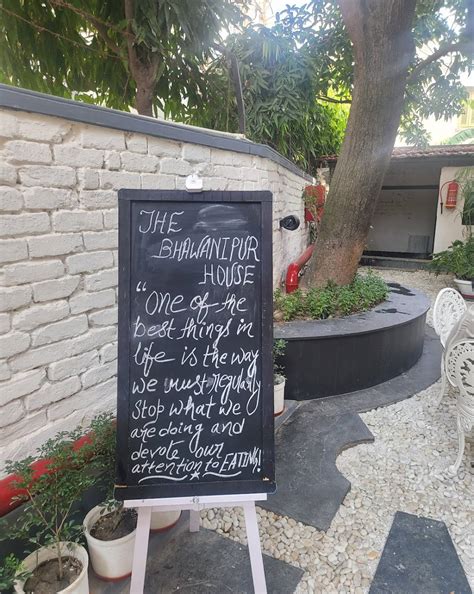 THE
BHAWANIPUR
HOUSE
"One of the
best things in
life is the way
we must regularly
stop what we
are doing and
devote our
attention to EATING!